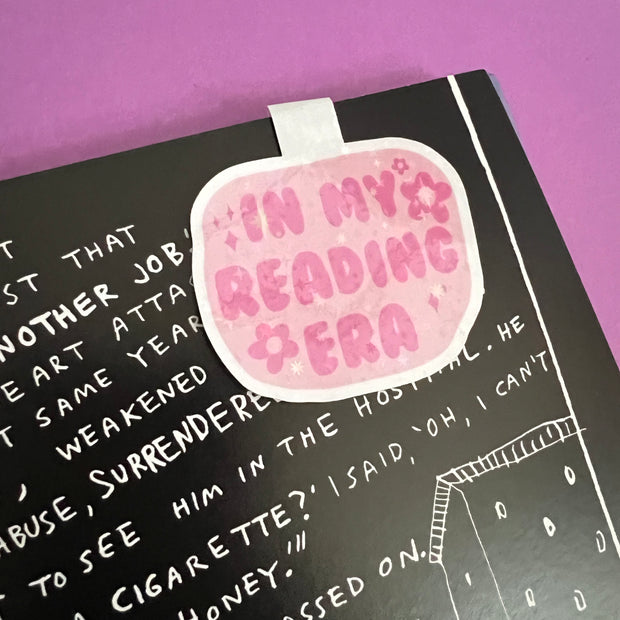 IN MY
READING
ERA
T
ST THAT
NOTHER JOB.
EART ATTA
T SAME YEAR
, WEAKENED
ABUSE, SURRENDERE
T TO SEE HIM IN THE HOSPITAL. HE
A CIGARETTE?' I SAID, 'OH, I CAN'T
HONEY.'"
ASSED ON.